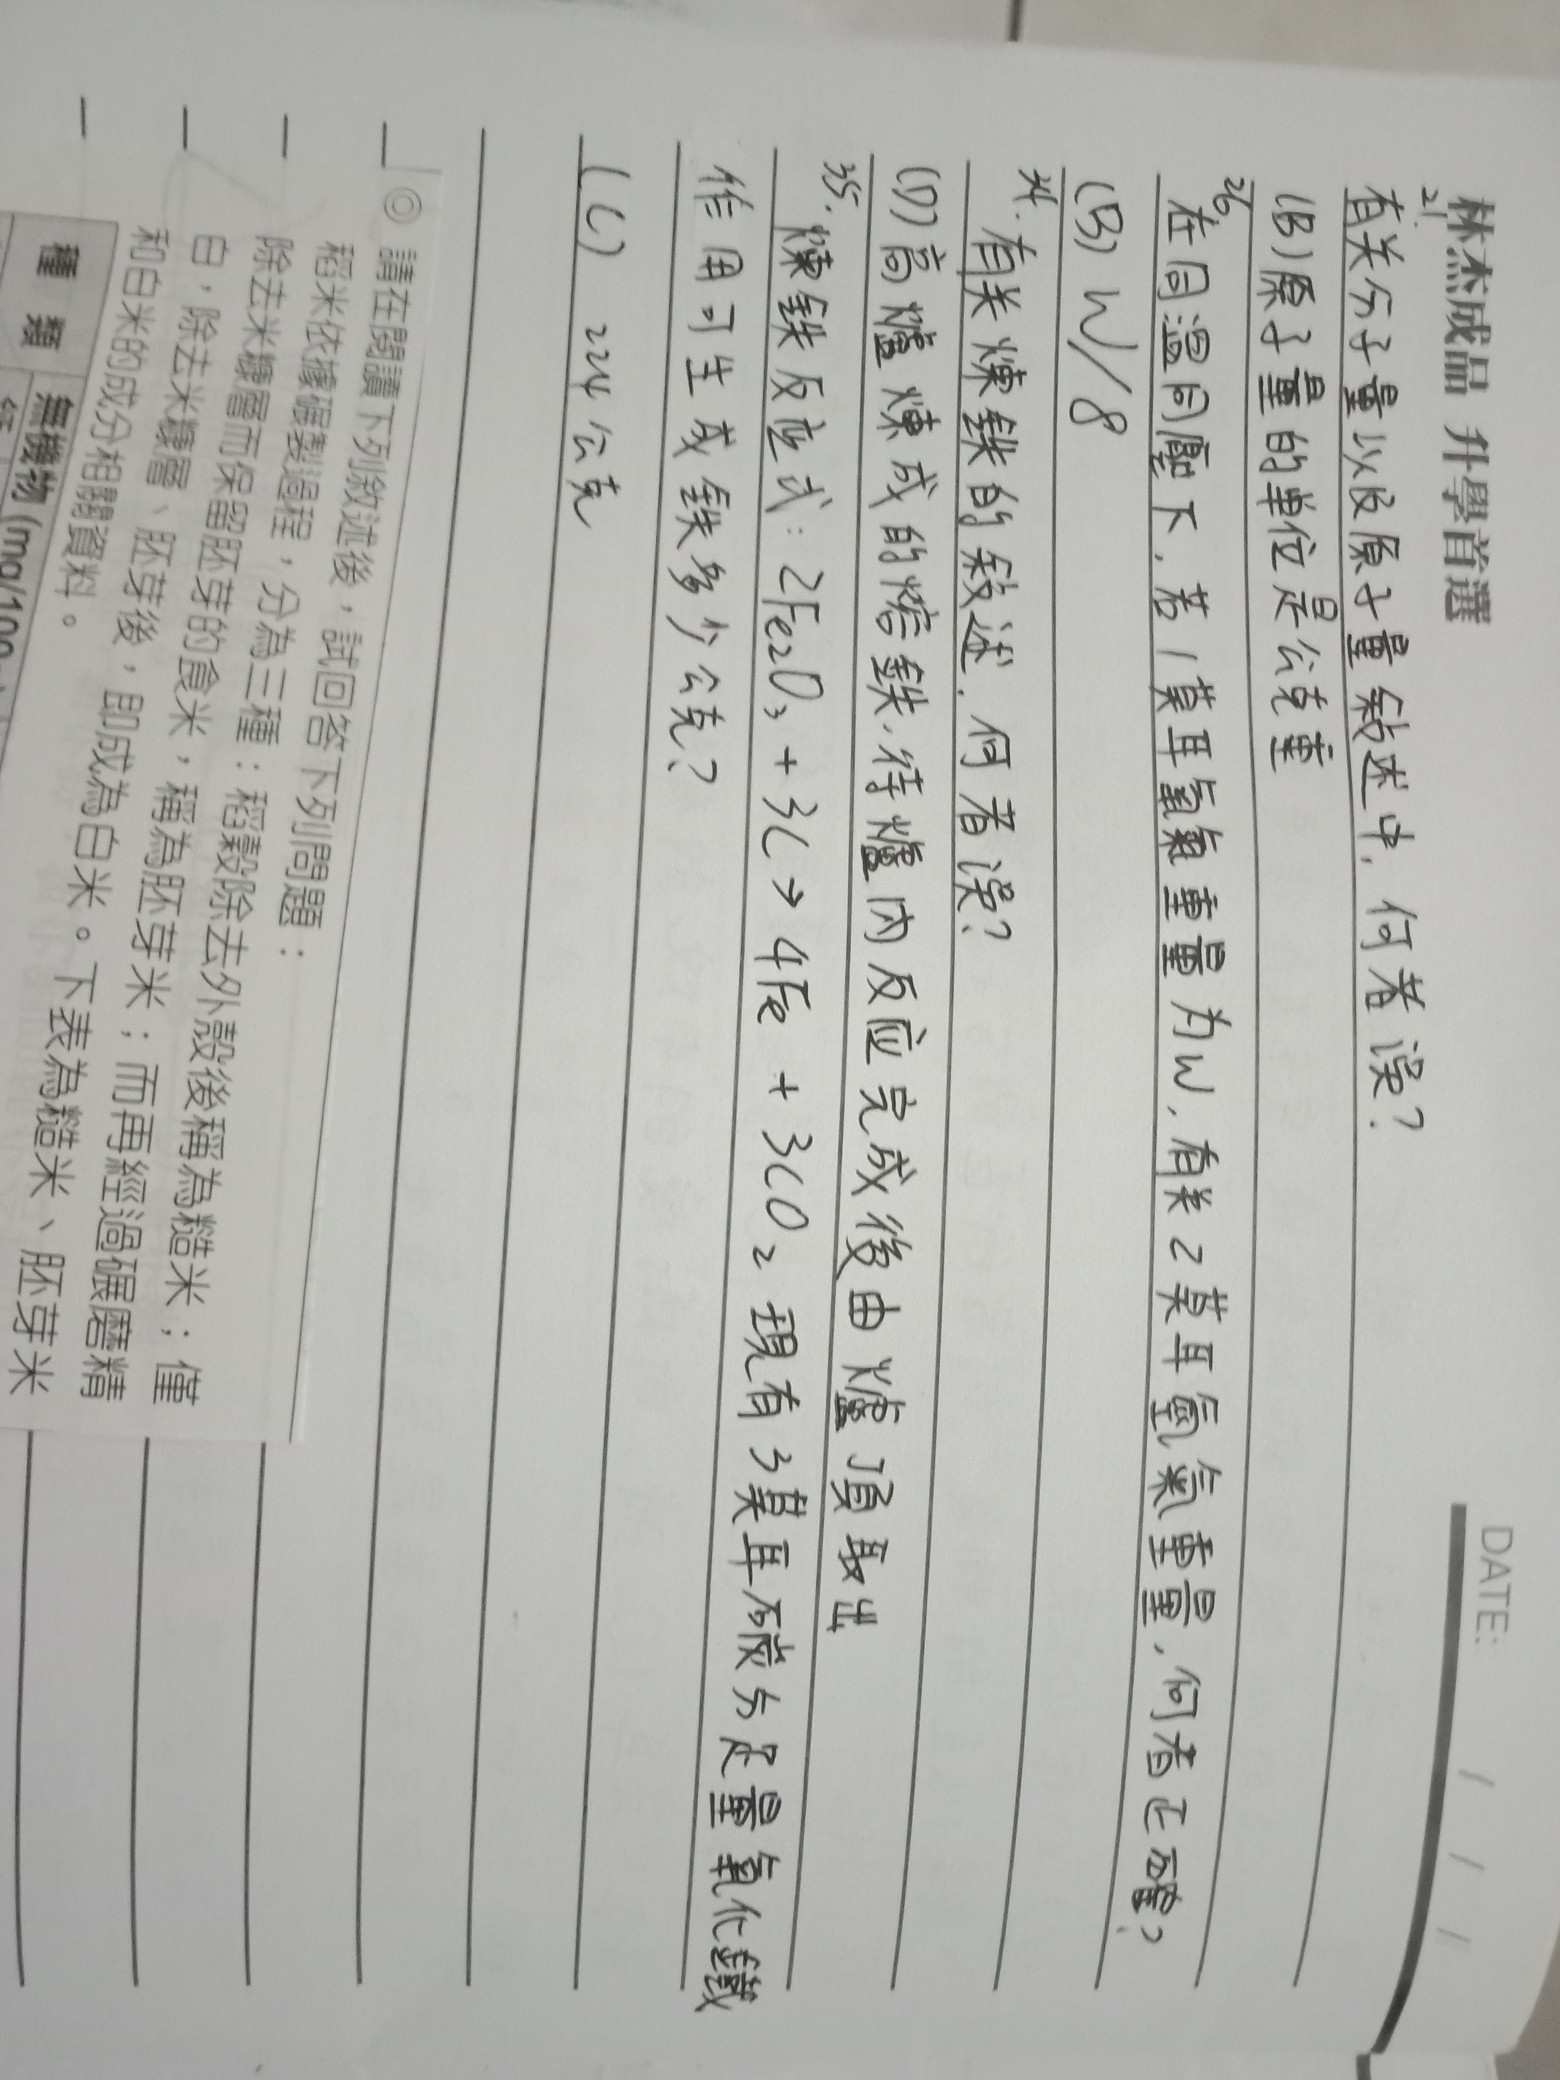 林杰成品 升學首選
DATE: / / /
21.
有关分子量以及原子量敍述中, 何者误?
(B)原子量的单位是公克重
26.
在同溫同壓下, 若1莫耳氧氣重量为W, 有关2莫耳氫氣重量, 何者正確?
(B) W/8
34. 有关煉鉄的敍述, 何者误?
(D)高爐煉成的熔鉄,待爐内反应完成後由爐頂取出
35.
煉鉄反应式: 2Fe₂O₃ + 3C → 4Fe + 3CO₂ 現有3莫耳碳与足量氧化鐵
作用可生成鉄多少公克?
(C) 224公克
◎ 請在閱讀下列敘述後，試回答下列問題：
稻米依據碾製過程，分為三種：稻穀除去外殼後稱為糙米；僅
除去米糠層而保留胚芽的食米，稱為胚芽米；而再經過碾磨精
白，除去米糠層、胚芽後，即成為白米。下表為糙米、胚芽米
和白米的成分相關資料。
種 類
無機物 (mg/100